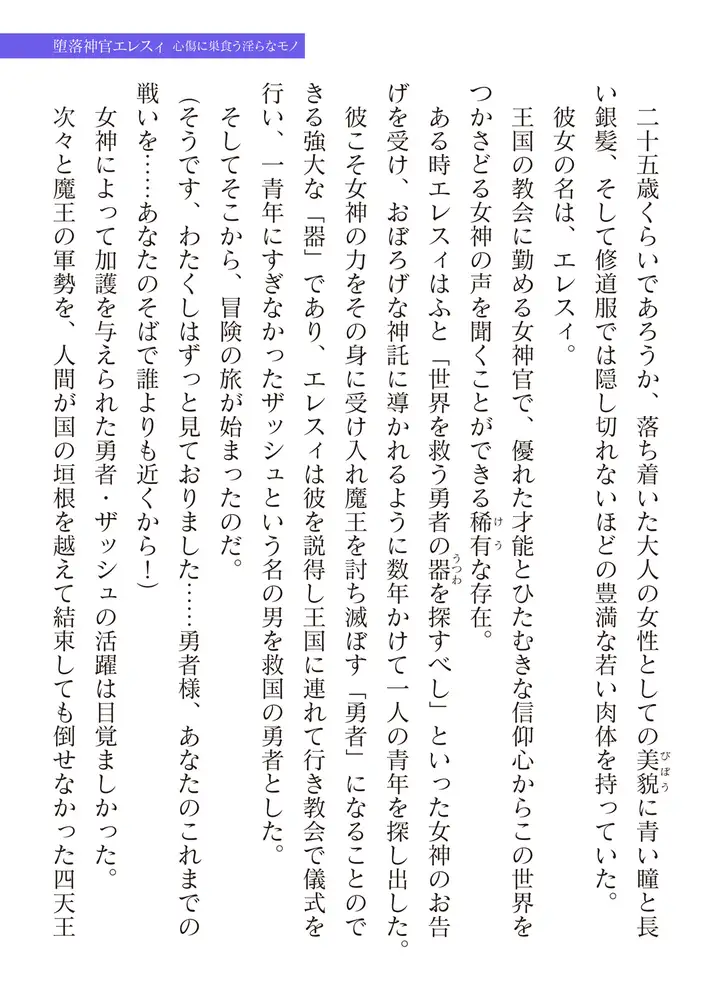 堕落神官エレスィ 心傷に巣食う淫らなモノ
二十五歳くらいであろうか、落ち着いた大人の女性としての美貌に青い瞳と長
びぼう
い銀髪、そして修道服では隠し切れないほどの豊満な若い肉体を持っていた。
彼女の名は、エレスィ。
王国の教会に勤める女神官で、優れた才能とひたむきな信仰心からこの世界を
つかさどる女神の声を聞くことができる稀有な存在。
けう
ある時エレスィはふと「世界を救う勇者の器を探すべし」といった女神のお告
うつわ
げを受け、おぼろげな神託に導かれるように数年かけて一人の青年を探し出した。
彼こそ女神の力をその身に受け入れ魔王を討ち滅ぼす「勇者」になることので
きる強大な「器」であり、エレスィは彼を説得し王国に連れて行き教会で儀式を
行い、一青年にすぎなかったザッシュという名の男を救国の勇者とした。
そしてそこから、冒険の旅が始まったのだ。
（そうです、わたくしはずっと見ておりました……勇者様、あなたのこれまでの
戦いを……あなたのそばで誰よりも近くから！）
女神によって加護を与えられた勇者・ザッシュの活躍は目覚ましかった。
次々と魔王の軍勢を、人間が国の垣根を越えて結束しても倒せなかった四天王